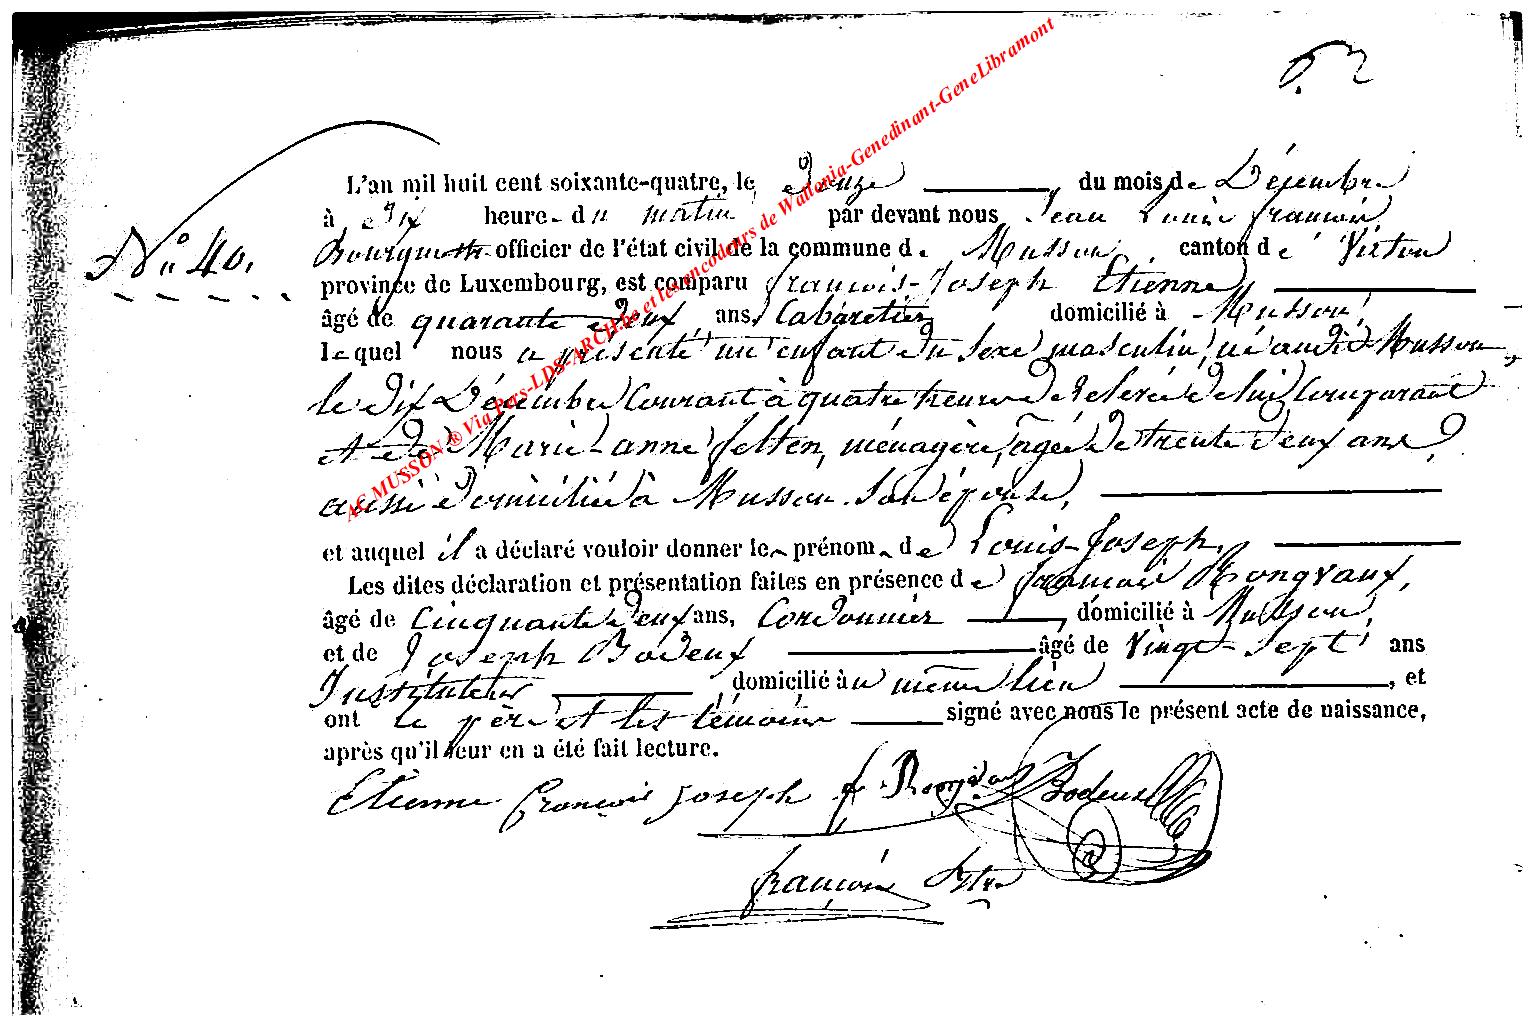 62
L'an mil huit cent soixante-quatre, le douze du mois de Décembre
à dix heure du matin par devant nous Jean Louis François
N° 40.
officier de l'état civil de la commune de Musson canton de Virton
province de Luxembourg, est comparu François-Joseph Etienne
âgé de quarante deux ans, Cabaretier domicilié à Musson,
lequel nous a présenté un enfant du sexe masculin, né audit Musson,
le dix Décembre courant à quatre heures de relevée de lui Comparant
et de Marie-anne felten, ménagère, agée de trente deux ans,
aussi domiciliée à Musson son épouse,
et auquel il a déclaré vouloir donner le prénom de Louis-Joseph,
Les dites déclaration et présentation faites en présence de françois Rongvaux,
âgé de Cinquante deux ans, Cordonnier domicilié à Musson,
et de Joseph Bodeux âgé de Vingt-Sept ans
Instituteur domicilié au même lieu, et
ont le père et les témoins signé avec nous le présent acte de naissance,
après qu'il leur en a été fait lecture.
Etienne françois Joseph f Rongvaux Bodeux
françois
AC MUSSON ® Via Pers-LDS-ARCH.be et les encodeurs de Wallonia-Genedinant-GeneLibramont